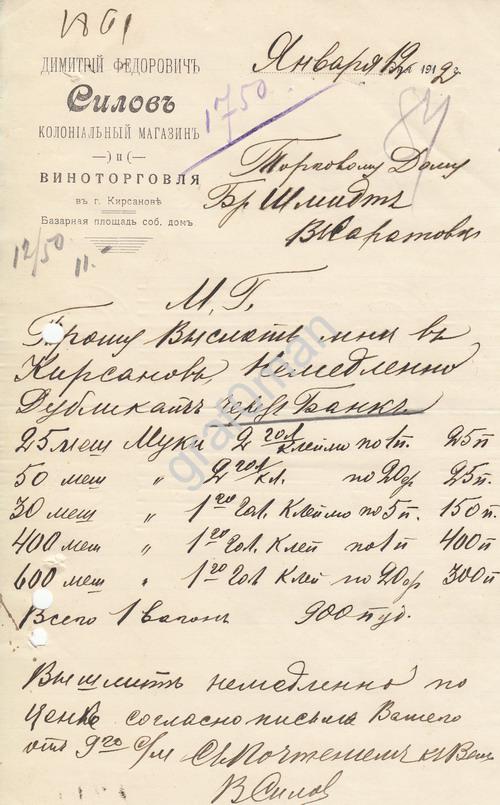 1861
ДИМИТРІЙ ФЕДОРОВИЧЪ
СИЛОВЪ
КОЛОНІАЛЬНЫЙ МАГАЗИНЪ
—) И (—
ВИНОТОРГОВЛЯ
въ г. Кирсановѣ
Базарная площадь соб. домъ
Января 19 1912 г
1750
84
12/50
11.-
Торговому Дому
Бр Шмидтъ
В Саратовѣ
М. Г.
Прошу Выслать мнѣ въ
Кирсановъ, немедленно
Дубликатъ черезъ Банкъ
25 меш Муки 2 гол клеймо по 1 п. 25 п
50 меш " 2 гол кл. по 20 ф 25 п.
30 меш " 1го гол. Клеймо по 5 п. 150 п.
400 меш " 1го гол. Клей по 1 п 400 п
600 меш " 1го гол Клей по 20 ф 300 п
Всего 1 вагонъ 900 пуд.
Вышлить немедленно по
Ценѣ согласно письма Вашего
отъ 9го с/м Съ Почтеніемъ къ Вам
В Силов
graf0man